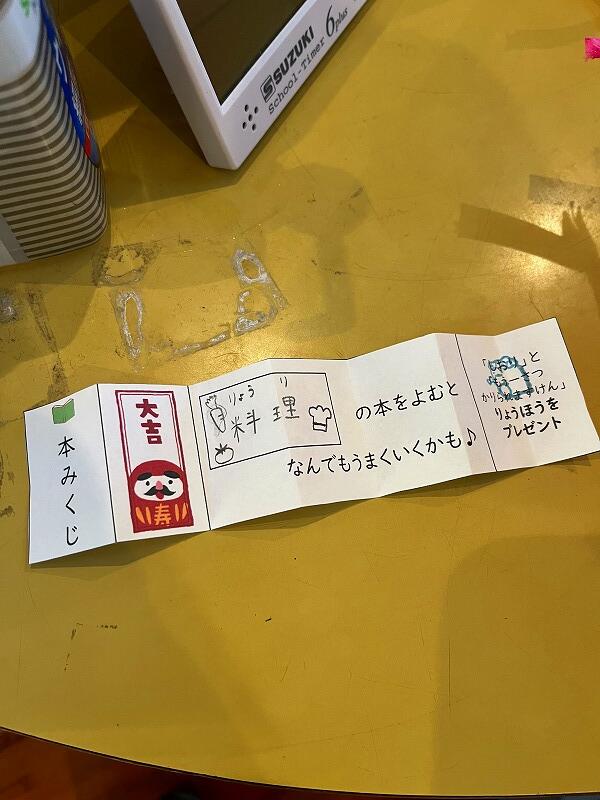 SUZUKI
School-Timer 6 plus
本みくじ
大吉
寿
りょう り
料理
の本をよむと
なんでもうまくいくかも♪
と
つ
りょうほうを
プレゼント